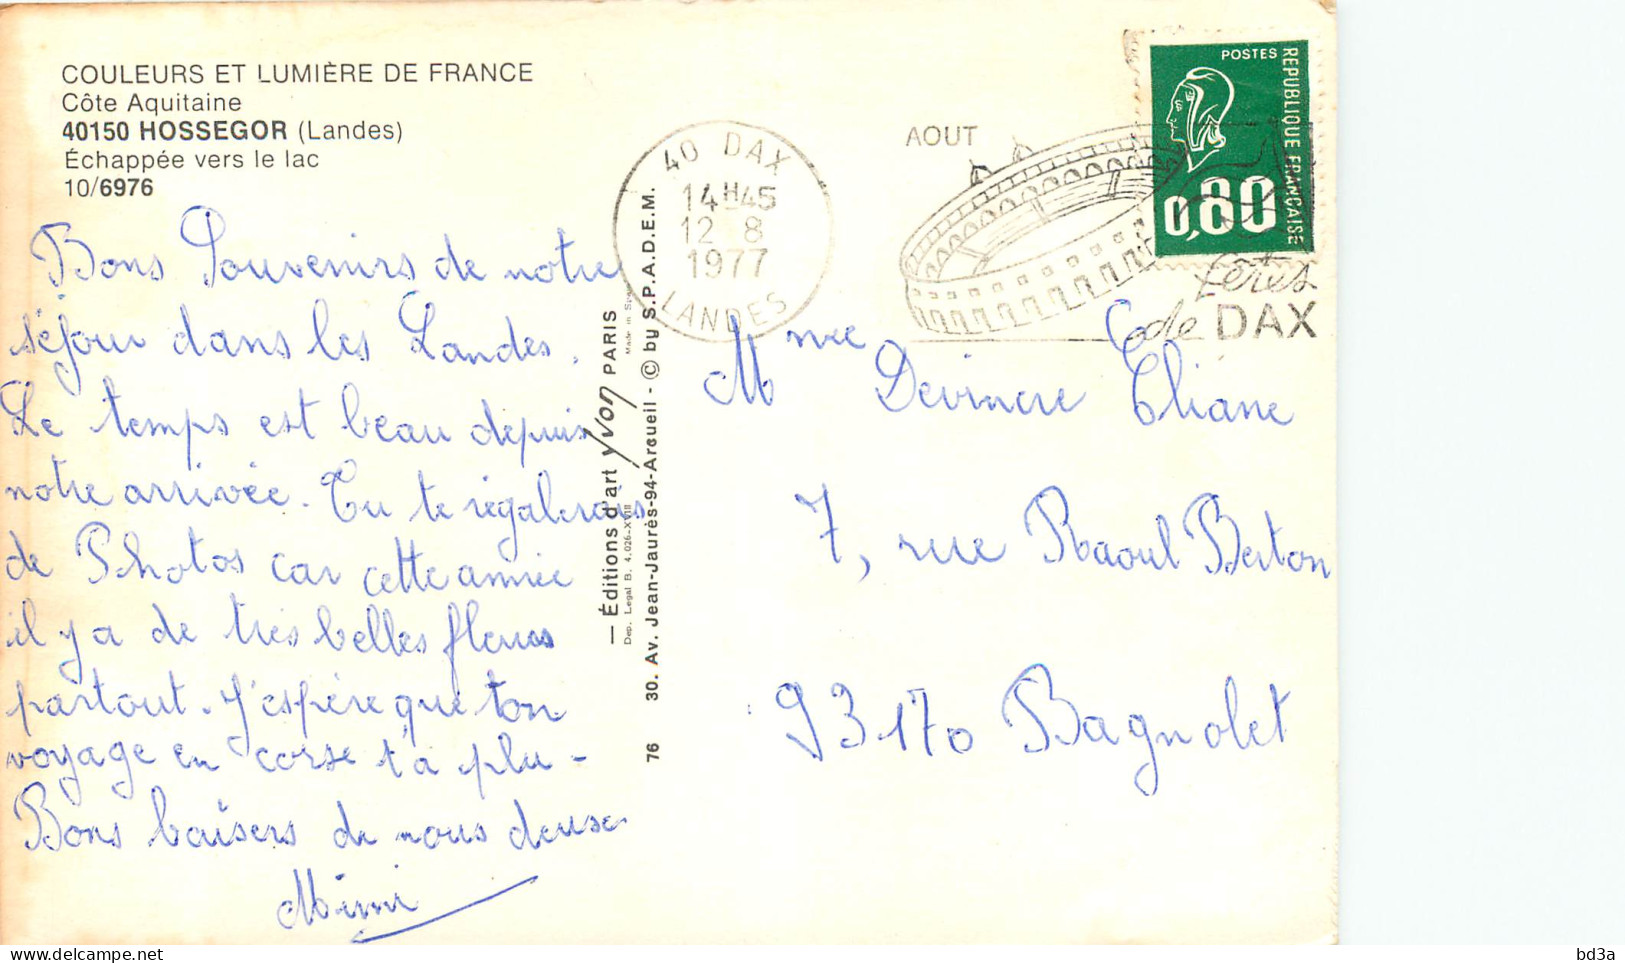 COULEURS ET LUMIÈRE DE FRANCE
Côte Aquitaine
40150 HOSSEGOR (Landes)
Échappée vers le lac
10/6976
Bons Souvenirs de notre
séjour dans les Landes.
Le temps est beau depuis
notre arrivée. Tu te régalerais
de Photos car cette année
il y a de très belles fleurs
partout. J'espère que ton
voyage en corse t'a plu -
Bons baisers de nous deux
Mimi
— Éditions d'art Yvon PARIS
Dep. Legal B. 4.026-XVIII
Made in
76 30. Av. Jean-Jaurès-94-Arcueil - © by S.P.A.D.E.M.
40 DAX
14H45
12 8
1977
LANDES
AOUT
fêtes
de DAX
POSTES
REPUBLIQUE FRANÇAISE
0,80
Mme Devincre Eliane
7, rue Raoul Berton
93170 Bagnolet
bd3a